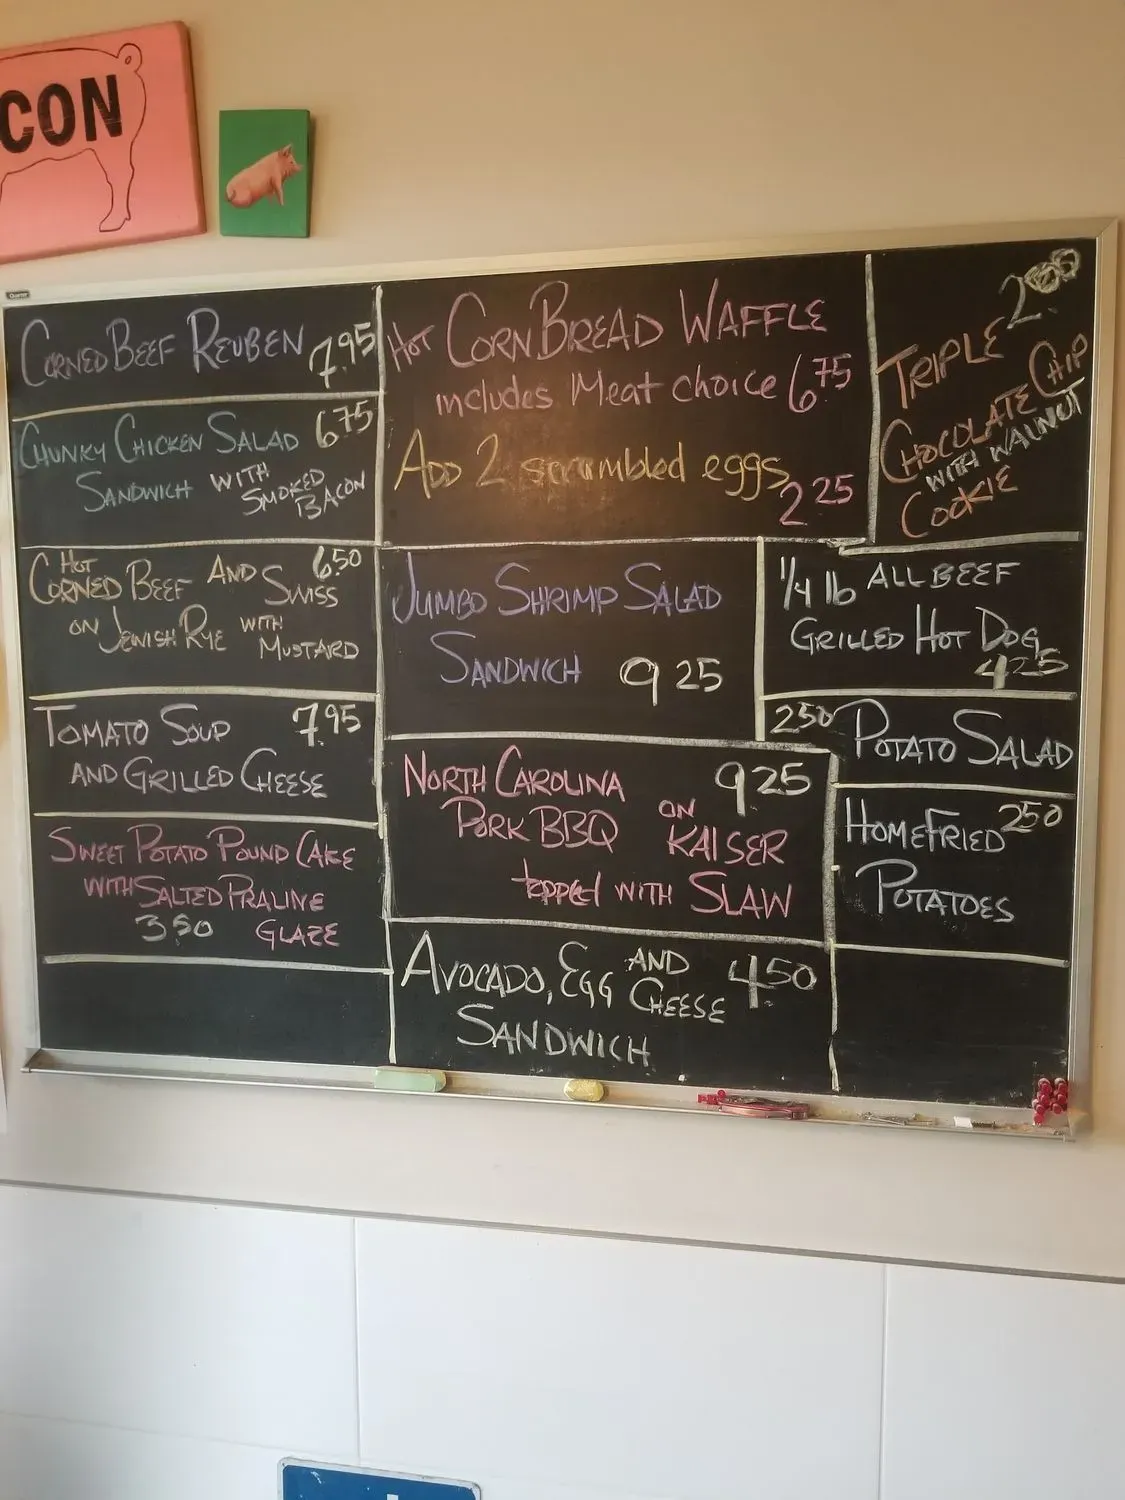 CON
Quartet
CORNED BEEF REUBEN 7.95
CHUNKY CHICKEN SALAD 6.75
SANDWICH WITH SMOKED BACON
HOT CORNED BEEF AND SWISS 6.50
ON JEWISH RYE WITH MUSTARD
TOMATO SOUP 7.95
AND GRILLED CHEESE
SWEET POTATO POUND CAKE
WITH SALTED PRALINE
3.50 GLAZE
HOT CORNBREAD WAFFLE
includes Meat choice 6.75
ADD 2 scrambled eggs
2.25
JUMBO SHRIMP SALAD
SANDWICH 9.25
NORTH CAROLINA 9.25
PORK BBQ ON KAISER
topped WITH SLAW
AVOCADO, EGG AND CHEESE 4.50
SANDWICH
2.00
TRIPLE
CHOCOLATE CHIP
WITH WALNUT
COOKIE
1/4 lb ALL BEEF
GRILLED HOT DOG
4.25
2.50 POTATO SALAD
HOMEFRIED 2.50
POTATOES